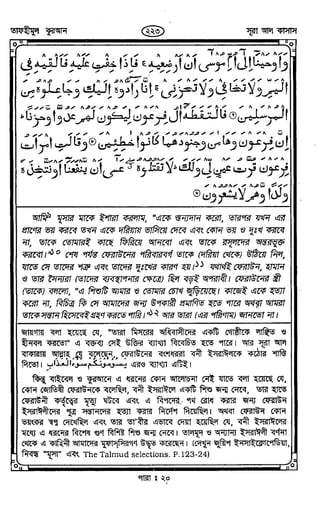 তাফহীমুল কুরআন
২২৩
সূরা আল কাসাস
وَأَوْحَيْنَا إِلَى أُمِّ مُوسَى أَنْ أَرْضِعِيهِ ۚ فَإِذَا خِفْتِ عَلَيْهِ فَأَلْقِيهِ فِي
الْيَمِّ وَلَا تَخَافِي وَلَا تَحْزَنِي ۚ إِنَّا رَادُّوهُ إِلَيْكِ وَجَاعِلُوهُ مِنَ
الْمُرْسَلِينَ ۞ فَالْتَقَطَهُ آلُ فِرْعَوْنَ لِيَكُونَ لَهُمْ عَدُوًّا وَحَزَنًا ۗ
إِنَّ فِرْعَوْنَ وَهَامَانَ وَجُنُودَهُمَا كَانُوا خَاطِئِينَ ۞ وَقَالَتِ امْرَأَتُ
فِرْعَوْنَ قُرَّتُ عَيْنٍ لِي وَلَكَ ۖ لَا تَقْتُلُوهُ عَسَى أَنْ يَنْفَعَنَا أَوْ نَتَّخِذَهُ
وَلَدًا وَهُمْ لَا يَشْعُرُونَ ۞
আমি মূসার মাকে ইশারা করলাম, "একে স্তন্যদান করো, তারপর যখন এর
প্রাণের ভয় করবে তখন একে দরিয়ায় ভাসিয়ে দেবে এবং কোন ভয় ও দুঃখ করবে
না, তাকে তোমারই কাছে ফিরিয়ে আনবো এবং তাকে রসূলদের অন্তরভুক্ত
করবো। শেষ পর্যন্ত ফেরাউনের পরিবারবর্গ তাকে (দরিয়া থেকে) উঠিয়ে নিল,
যাতে সে তাদের শত্রু এবং তাদের দুঃখের কারণ হয়। যথার্থই ফেরাউন, হামান
ও তার সৈন্যরা (তাদের ব্যবস্থাপনার ক্ষেত্রে) ছিল বড়ই অপরাধী। ফেরাউনের স্ত্রী
(তাকে) বললো, "এ শিশুটি আমার ও তোমার চোখ জুড়িয়েছে। কাজেই একে হত্যা
করো না, বিচিত্র কি সে আমাদের জন্য উপকারী প্রমাণিত হতে পারে অথবা আমরা
তাকে সন্তান হিসেবেই গ্রহণ করতে পারি। আর তারা (এর পরিণাম) জানতো না।
জায়গায় বলা হয়েছে যে, "তারা মিসরের অধিবাসীদের একটি গোষ্ঠীকে লাঞ্ছিত ও
হীনবল করতো" এ বক্তব্য সেই উক্তির ব্যাখ্যা বিবেচিত হতে পারে। আর সূরা আল
বাকারায় আল্লাহ যে বলেছেন, ফেরাউনের বংশধররা বনী ইসরাঈলকে কঠোর শাস্তি
দিতো। يسومونكم سوء العذاب এরও ব্যাখ্যা এটিই।
কিন্তু বাইবেল ও কুরআনে এ ধরনের কোন আলোচনা নেই যাতে বলা হয়েছে যে,
কোন জ্যোতিষী ফেরাউনকে বলেছিল, বনী ইসরাঈলে একটি শিশু জন্ম নেবে, তার হাতে
ফেরাউনী কর্তৃত্বের মৃত্যু ঘটবে এবং এ বিপদের পথ রোধ করার জন্য ফেরাউন
ইসরাঈলীদের পুত্র সন্তানদের হত্যা করার নির্দেশ দিয়েছিল। অথবা ফেরাউন কোন
ভয়ংকর স্বপ্ন দেখেছিল এবং তার তা'বীর এভাবে দেয়া হয়েছিল যে, বনী ইসরাঈলের
মধ্যে এ ধরনের বিশেষ গুণ বিশিষ্ট শিশু জন্ম নেবে। তালমূদ ও অন্যান্য ইসরাঈলী বর্ণনা
থেকে এ কাহিনী আমাদের মুফাস্সিরগণ উদ্ধৃত করেছেন। (দেখুন জুয়িশ ইনসাইক্লোপেডিয়া,
নিবন্ধ "মূসা" এবং The Talmud selections. P.123-24)
পারা : ২০